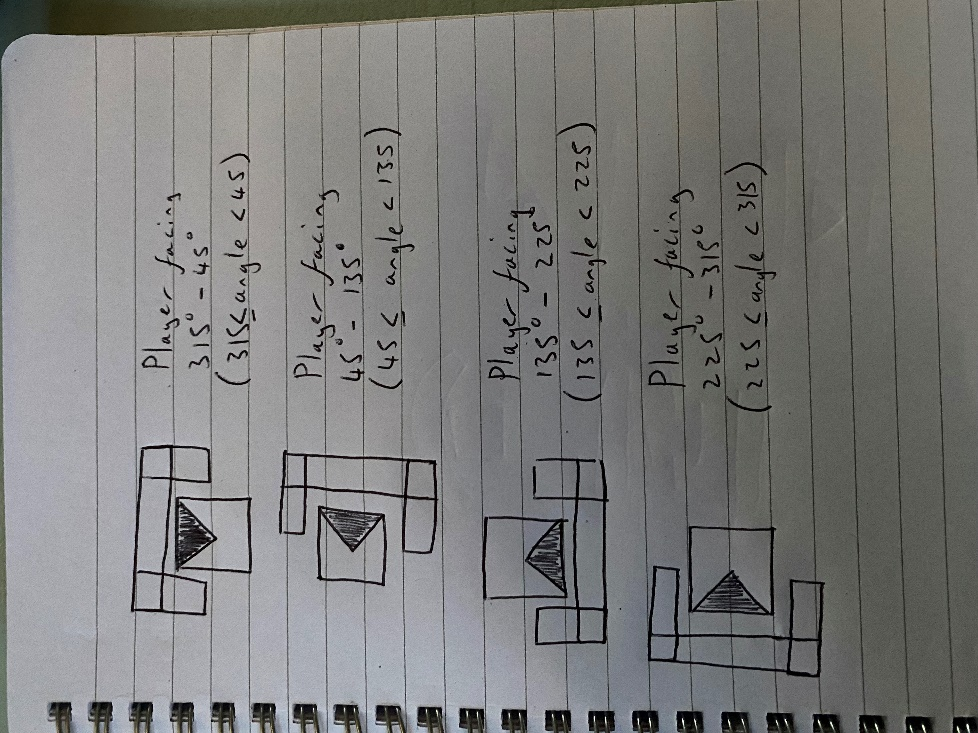 Player facing
315° - 45°
(315 ≤ angle < 45)
Player facing
45° - 135°
(45 ≤ angle < 135)
Player facing
135° - 225°
(135 ≤ angle < 225)
Player facing
225° - 315°
(225 ≤ angle < 315)